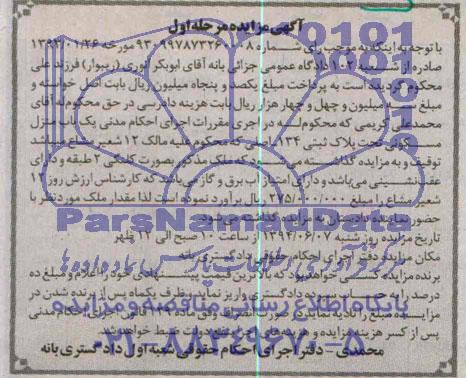 آگهی مزایده مرحله اول
با توجه به اینکه به موجب رای شماره مورخه ۱۳۹۳/۰۱/۲۶
صادره از شعبه ۱۰۲ دادگاه عمومی جزائی بانه آقای ابوبکر انوری (ریبوار) فرزند علی
محکوم گردیده است به پرداخت مبلغ یکصد و پنجاه میلیون ریال بابت اصل خواسته و
مبلغ سه میلیون و چهل و چهار هزار ریال بابت هزینه دادرسی در حق محکوم له آقای
محمدعلی کریمی که محکوم له در اجرای مقررات اجرای احکام مدنی یک باب منزل
مسکونی تحت پلاک ثبتی اصلی که محکوم علیه مالک ۱۲ شعیر مشاع میباشد
توقیف و به مزایده گذاشته می شود که ملک مذکور بصورت کلنگی ۲ طبقه و دارای
عقب نشینی می باشد و دارای امتیاز آب برق و گاز می باشد که کارشناس ارزش روز ۱۲
شعیر مشاع را مبلغ ریال برآورد نموده است لذا مقدار ملک مورد نظر با
حضور نماینده دادستان به مزایده گذاشته می شود.
تاریخ مزایده روز شنبه ۱۳۹۴/۰۶/۰۷ از ساعت ۱۰ صبح الی ۱۲ ظهر
مکان مزایده دفتر اجرای احکام حقوقی دادگستری بانه
برنده مزایده کسی خواهد بود که بالاترین قیمت پیشنهادی خود را اعلام و مبلغ ده
درصد را به حساب سپرده دادگستری واریز نماید و ظرف یکماه پس از برنده شدن در
مزایده مبلغ را تادیه نماید در صورت انصراف وفق ماده قانون اجرای احکام مدنی
پس از کسر هزینه مزایده و هزینه های اجرا بنفع دولت ضبط خواهد شد.
محمدی - دفتر اجرای احکام حقوقی شعبه اول دادگستری بانه
ParsNamadData
پایگاه اطلاع رسانی مناقصه و مزایده
۰۲۱-۸۸۳۴۹۶۷۰-۵